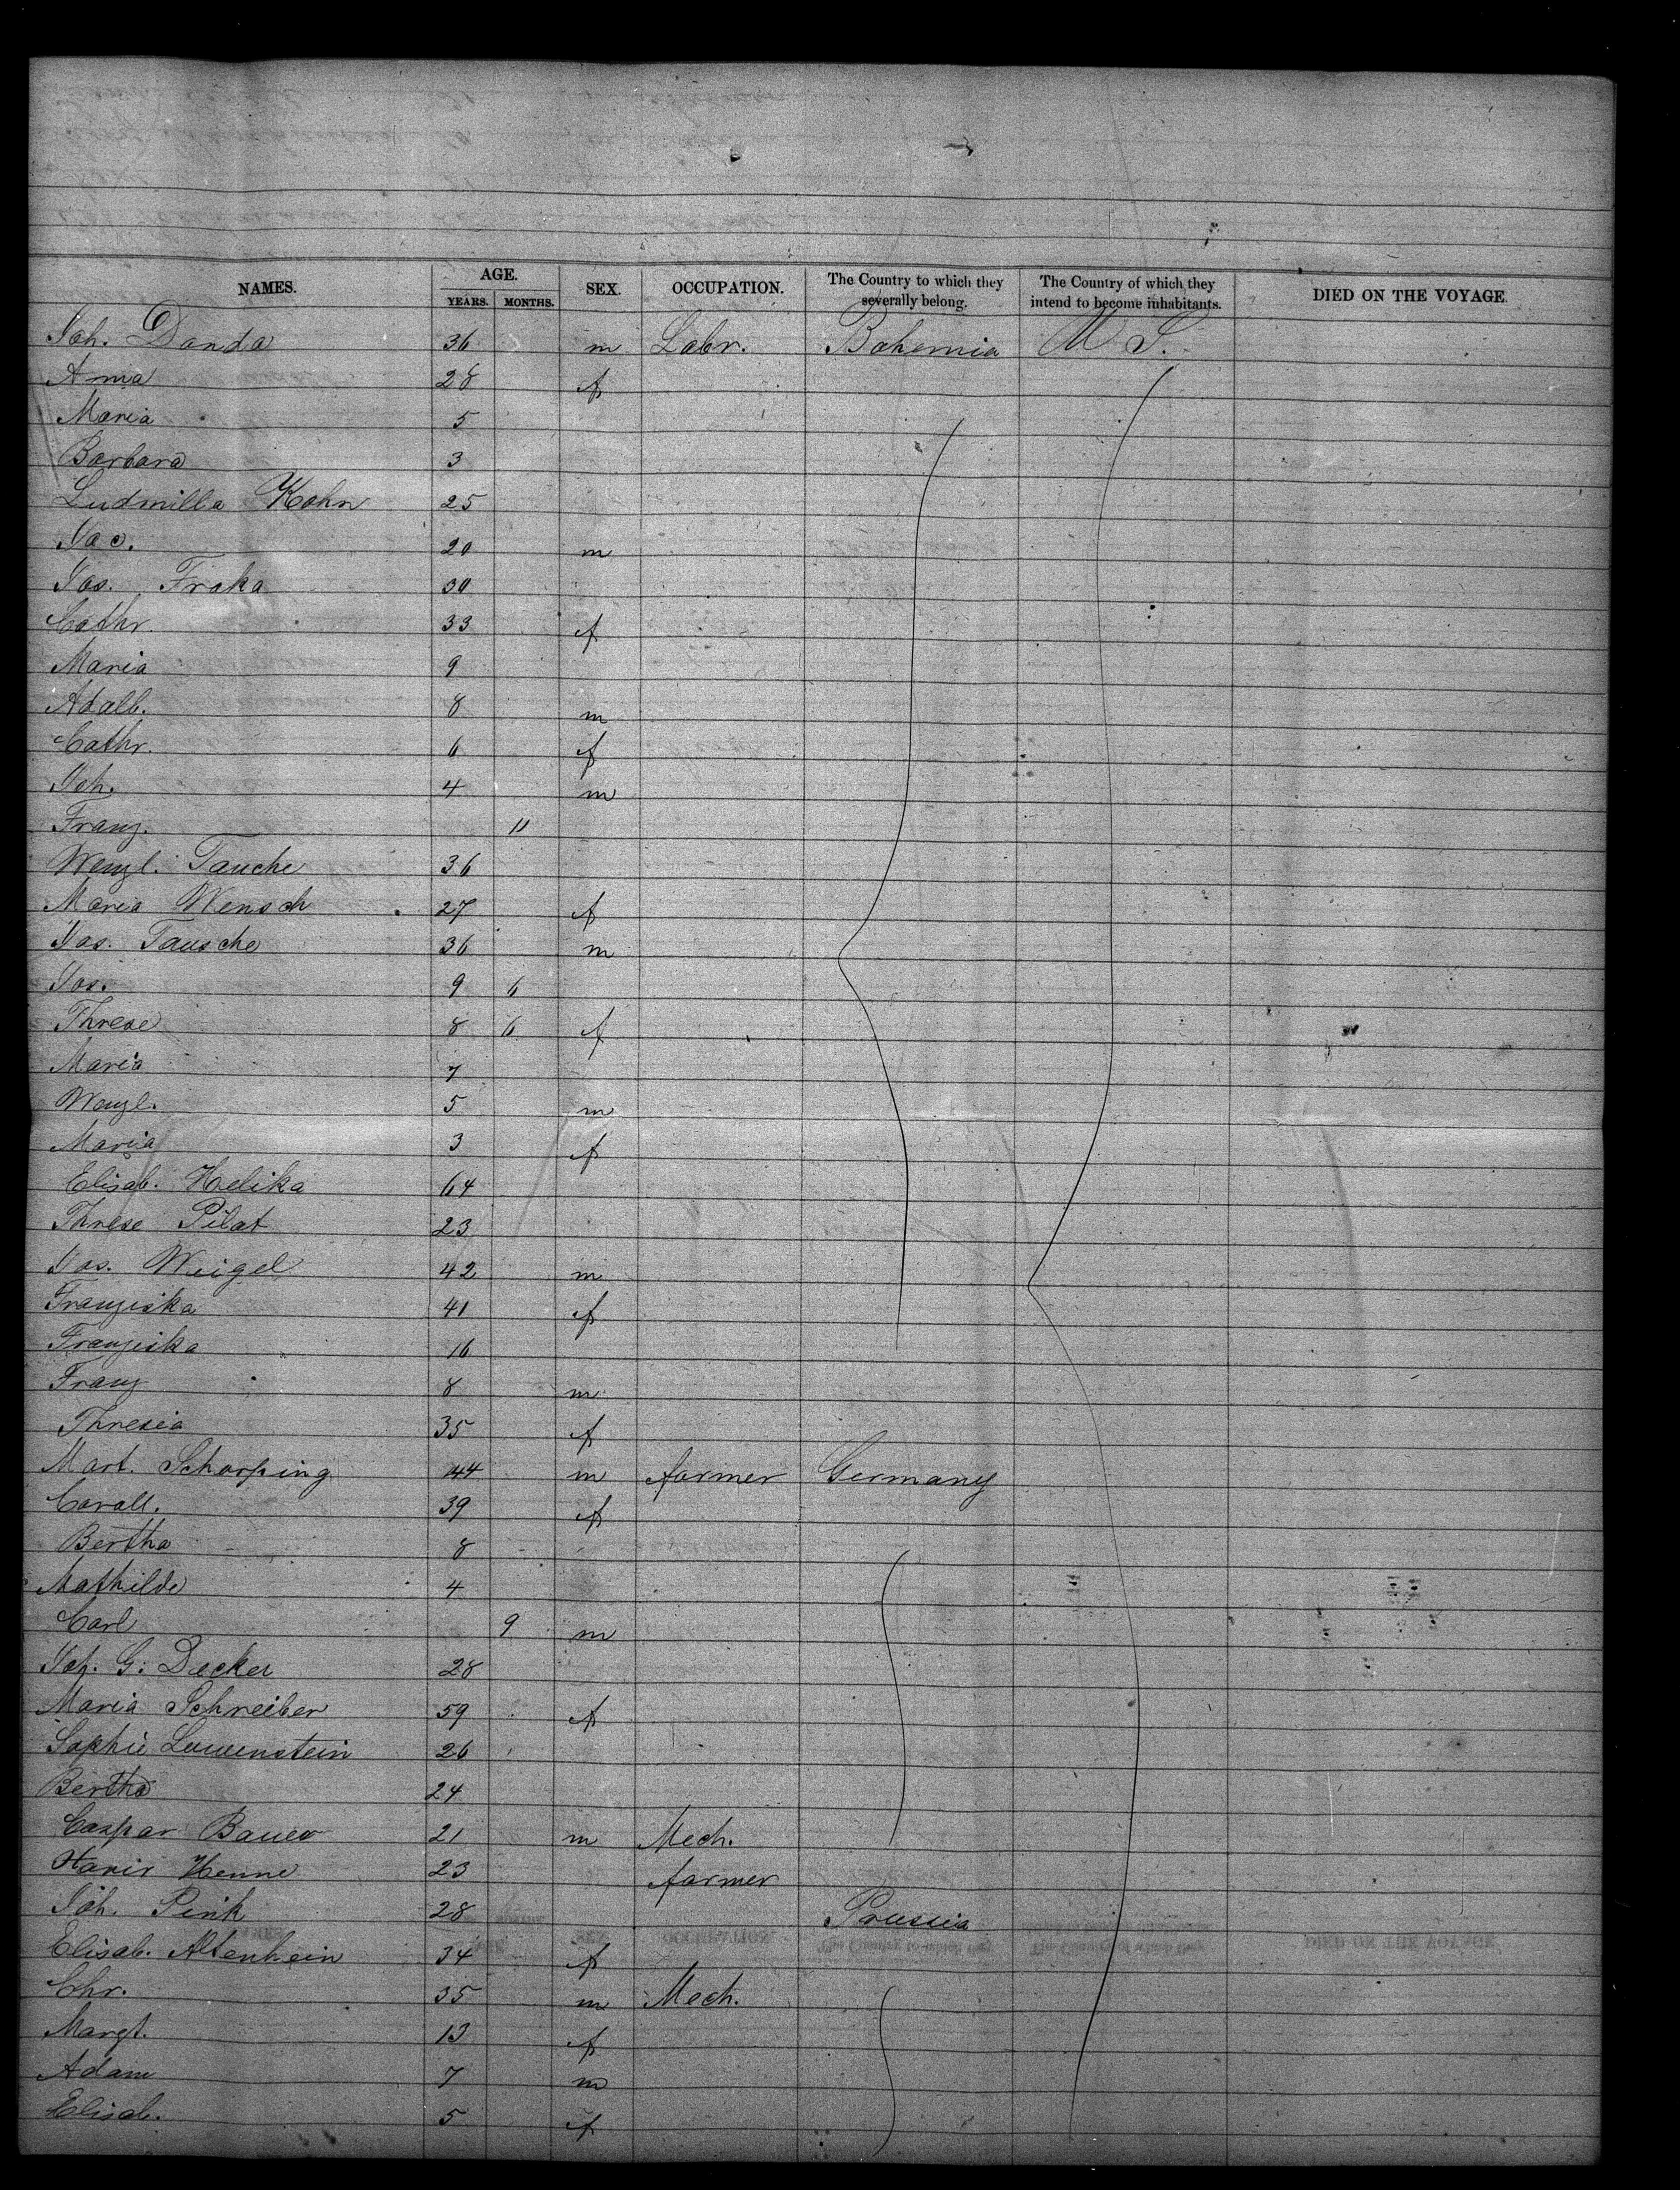 NAMES. AGE. YEARS. MONTHS. SEX. OCCUPATION. The Country to which they severally belong. The Country of which they intend to become inhabitants. DIED ON THE VOYAGE
Joh. Danda 36 m Labr. Bohemia U S.
Anna 28 f
Maria 5
Barbara 3
Ludmilla Kohn 25
Jac. 20 m
Jos. Fraka 30
Cathr. 33 f
Maria 9
Adalb. 8 m
Cathr. 6 f
Joh. 4 m
Franz. 11
Wenzl. Tauche 36
Maria Wensch 27 f
Jos. Tausche 36 m
Jos. 9 6
Threse 8 6 f
Maria 7
Wenzl. 5 m
Maria 3 f
Elisab. Helika 64
Threse Pilat 23
Jos. Weigel 42 m
Franziska 41 f
Franziska 16
Franz 8 m
Thresia 35 f
Mart. Schorping 44 m farmer Germany
Caroll. 39 f
Bertha 8
Mathilde 4
Carl 9 m
Joh. G. Decker 28
Maria Schreiber 59 f
Sophie Lewenstein 26
Bertha 24
Caspar Bauer 21 m Mech.
Henne 23 farmer
Joh. Pink 28 Prussia
Elisab. Altenhein 34 f
Chr. 35 m Mech.
Margt. 13 f
Adam 7 m
Elisab. 5 f